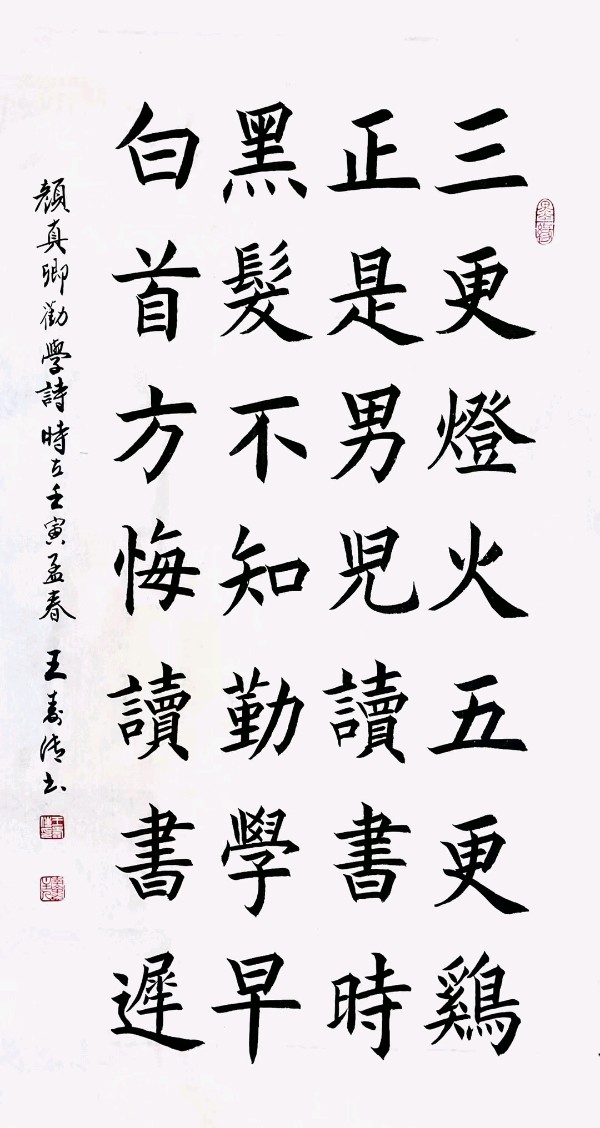 三更燈火五更鷄
正是男兒讀書時
黑髮不知勤學早
白首方悔讀書遲
顏真卿勸學詩時在壬寅孟春王壽清書